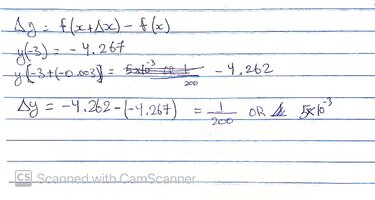 Δy = f(x+Δx) - f(x)
y(-3) = -4.267
y(-3+(-0.003)) = 5×10⁻³ OR 1/200 -4.262
Δy = -4.262-(-4.267) = 1/200 OR 5×10⁻³
CS Scanned with CamScanner